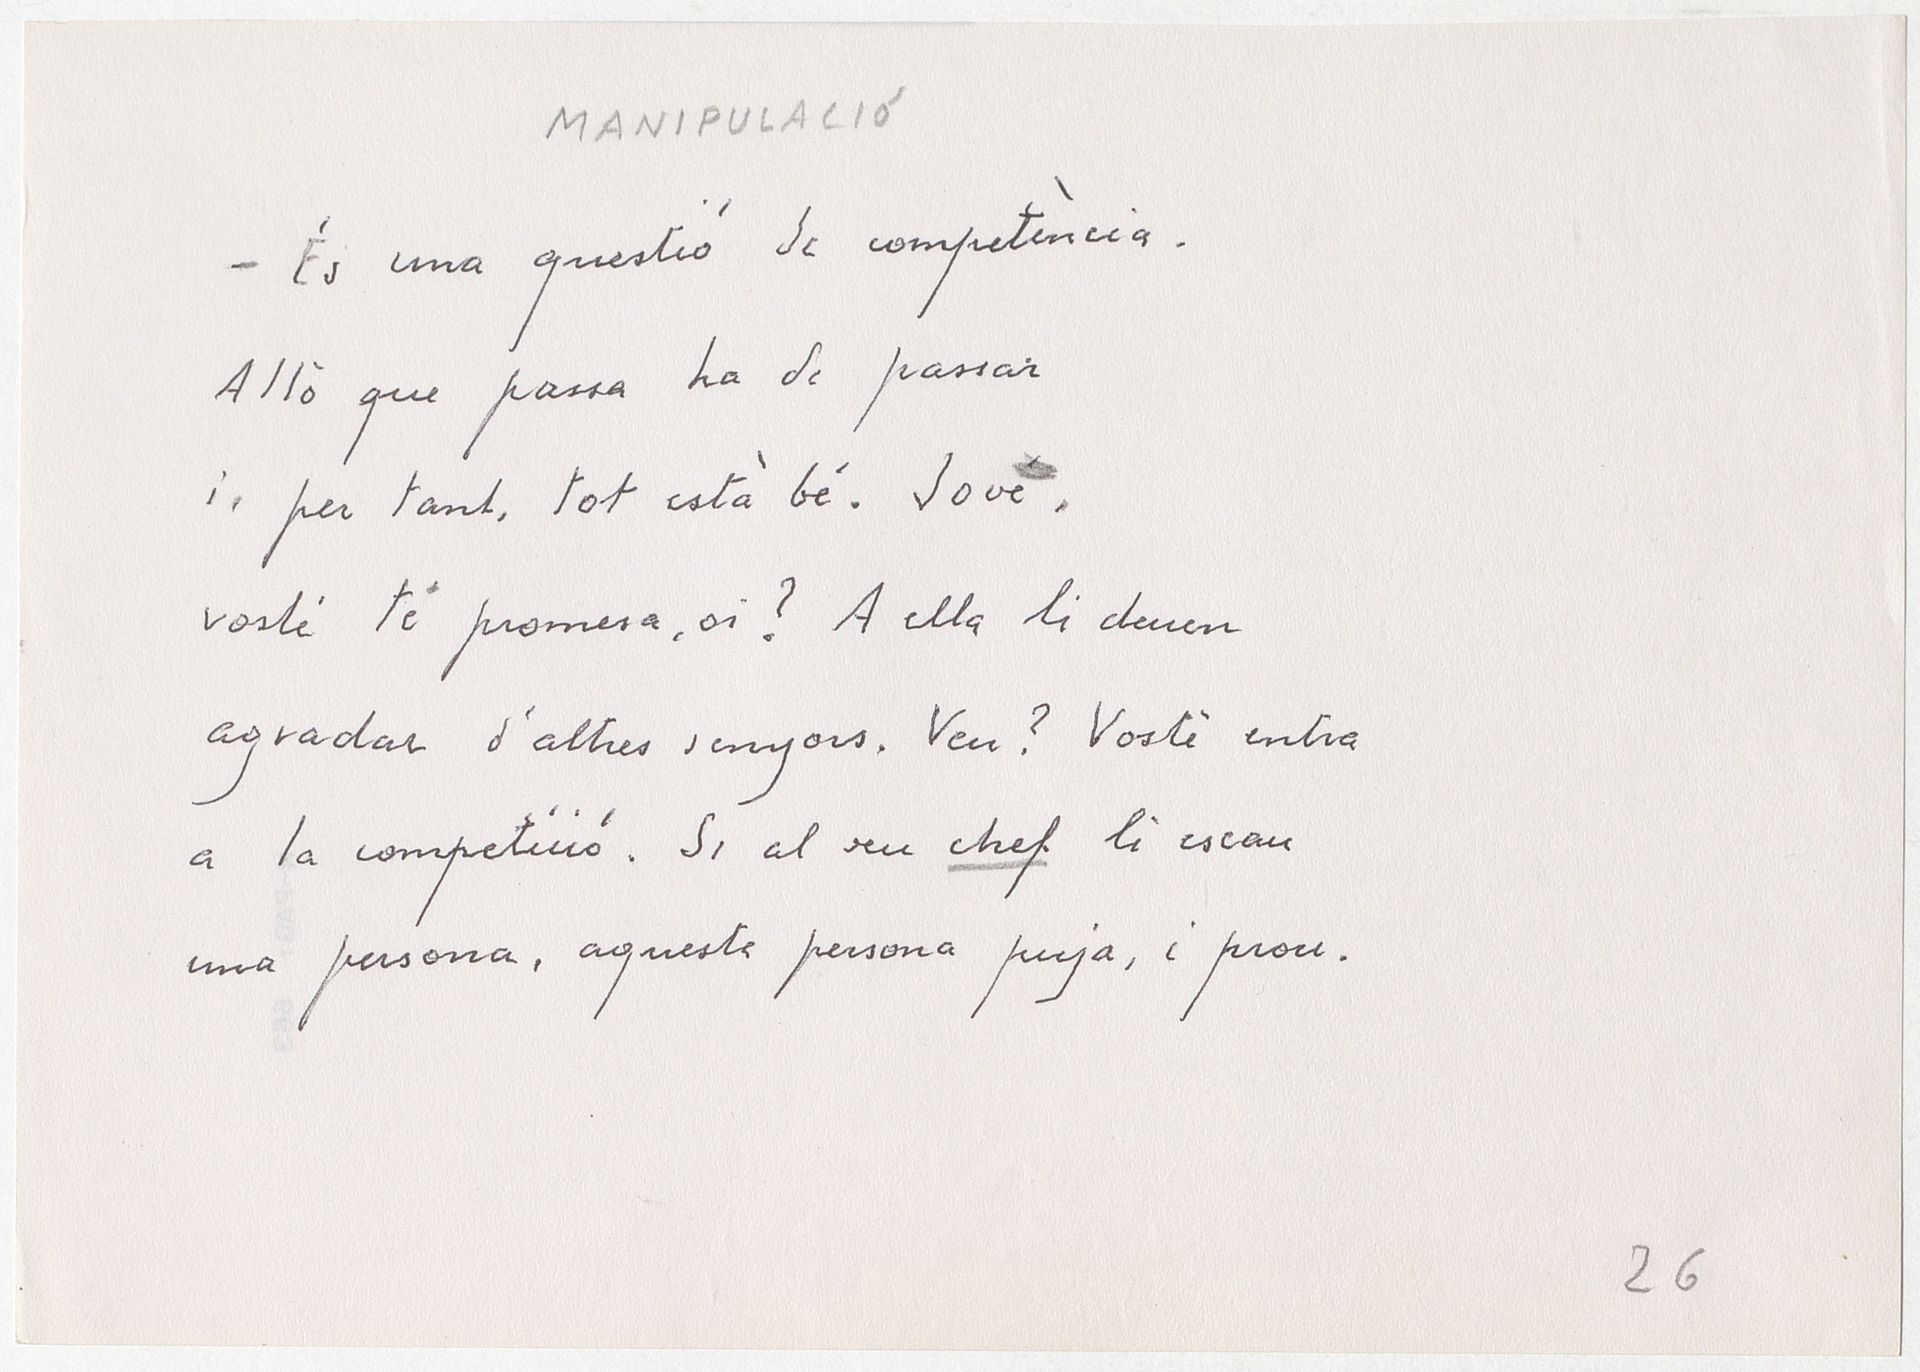 MANIPULACIÓ
- És una questió de competència.
Allò que passa ha de passar
i, per tant, tot està bé. Jove,
vosté té promesa, oi? A ella li deuen
agradar d'altres senyors. Veu? Vosté entra
a la competició. Si al seu chef li escau
una persona, aquesta persona puja, i prou.
26